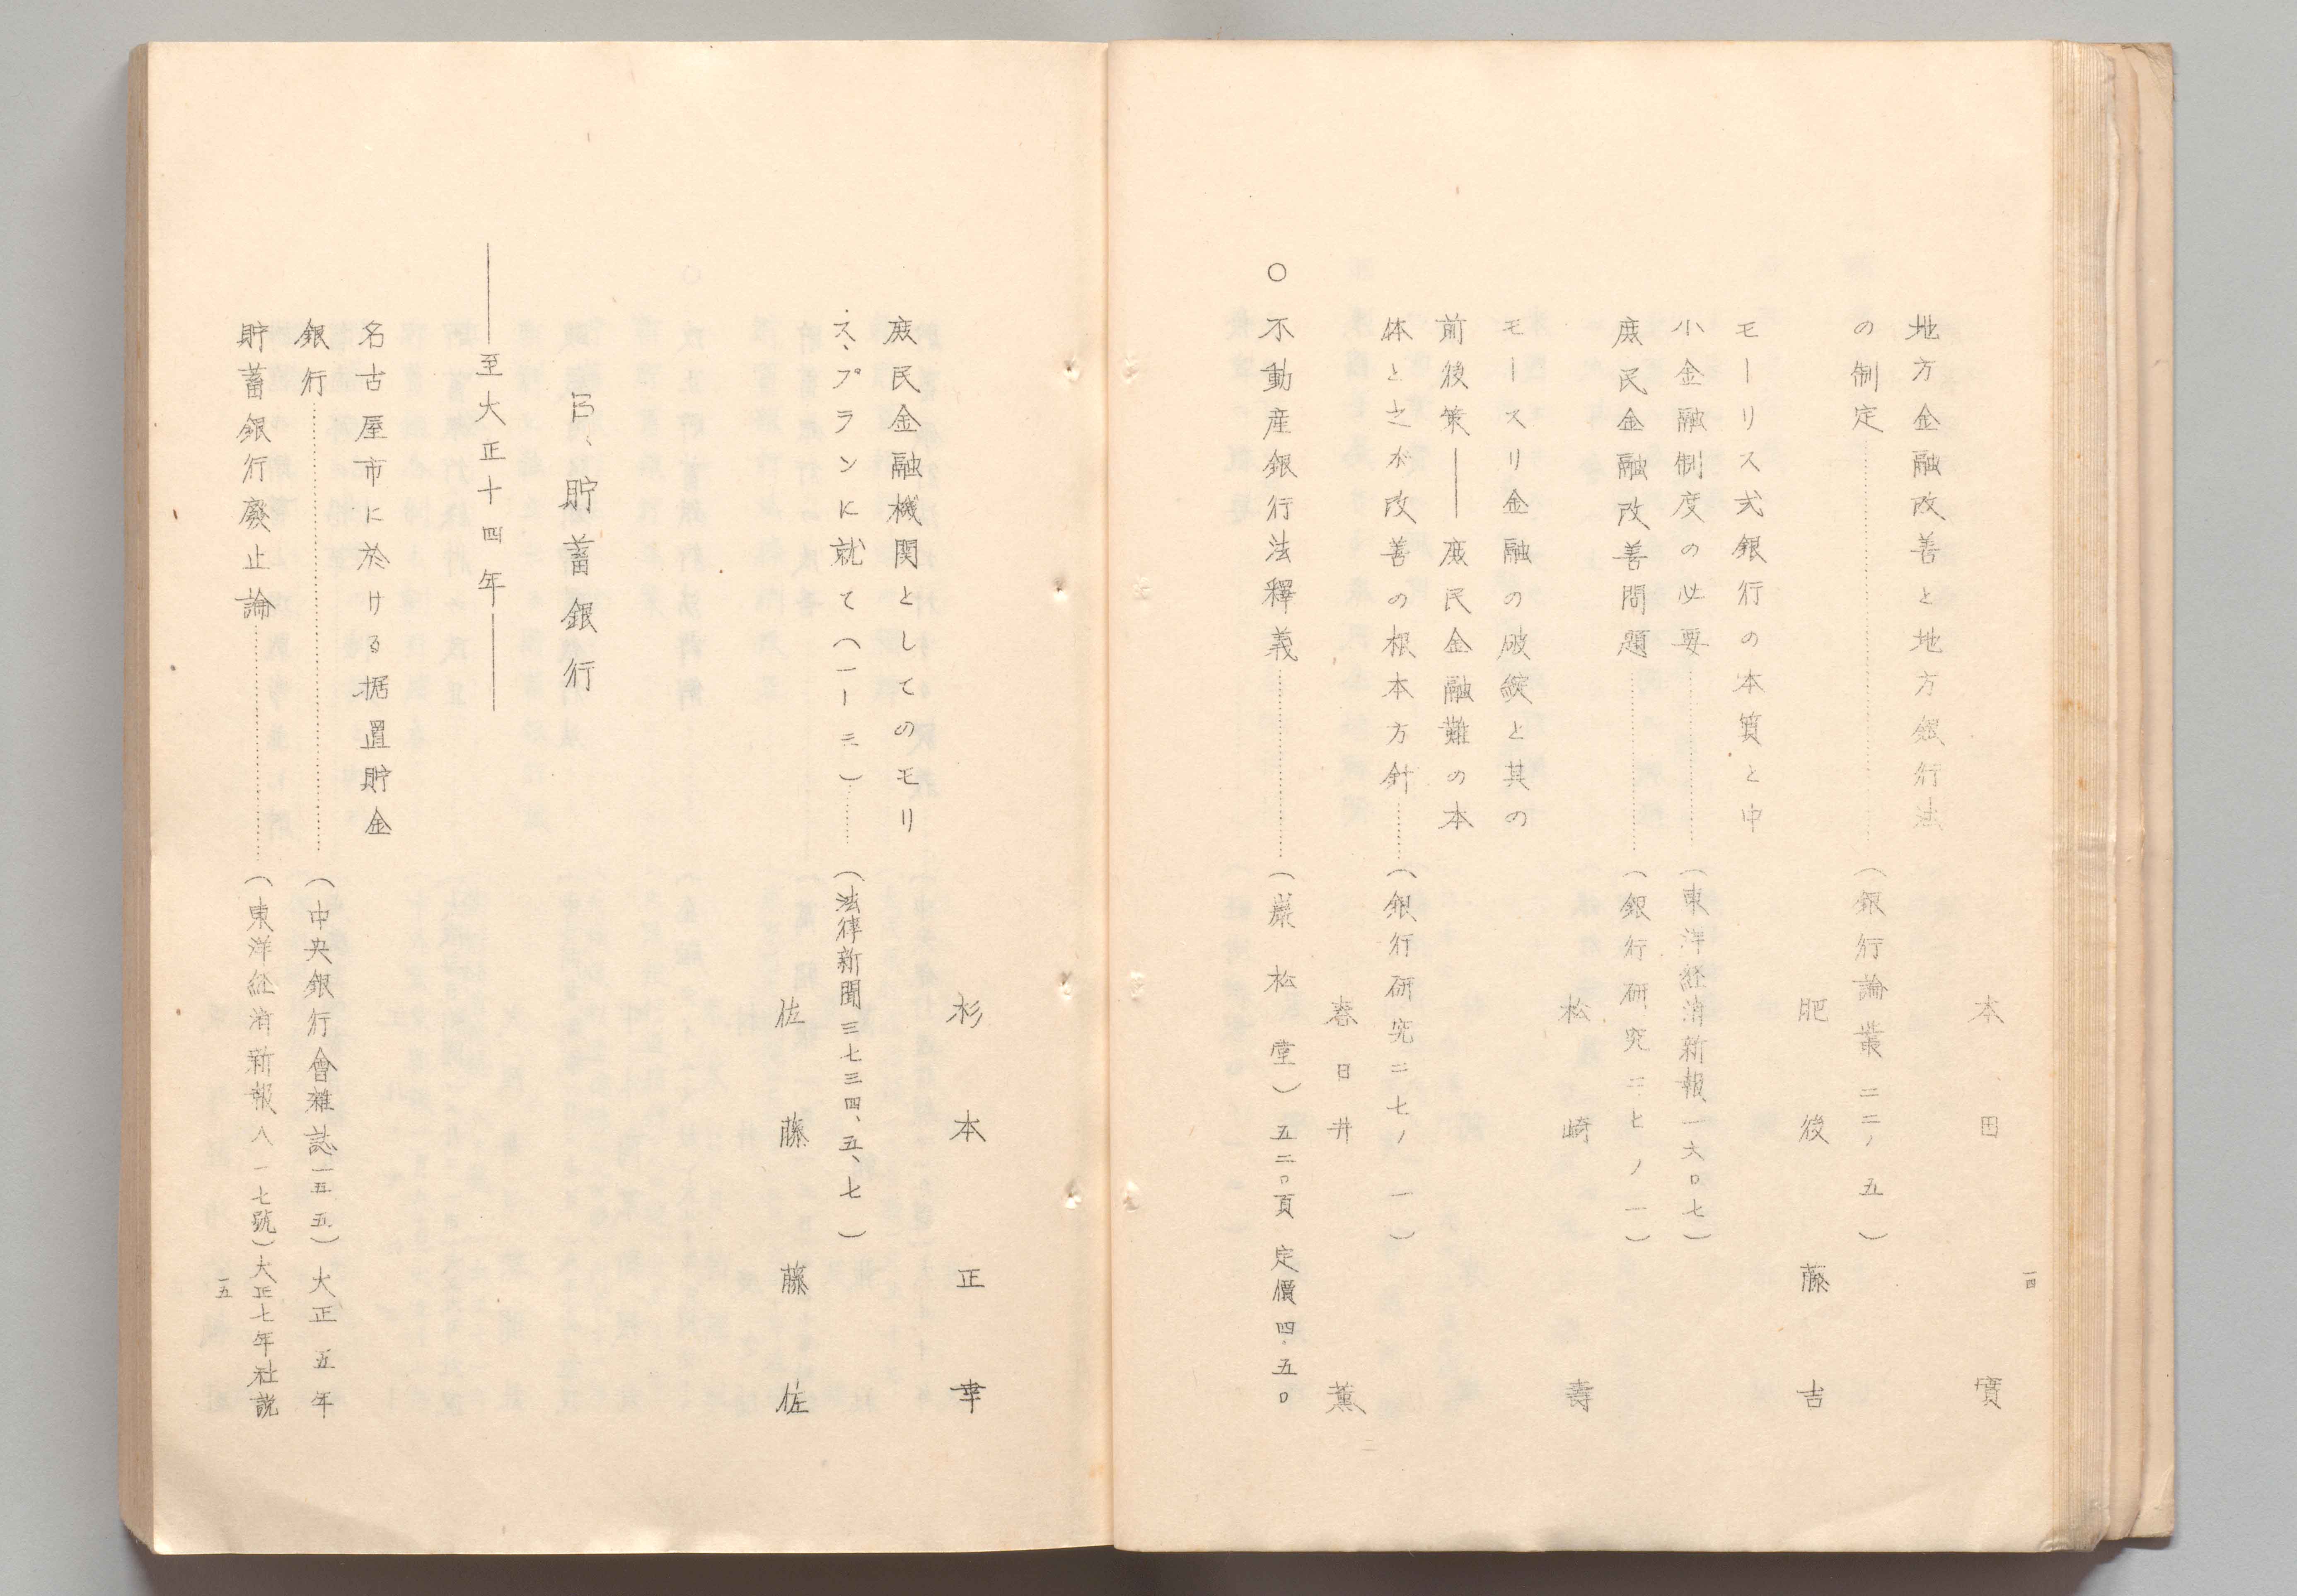 一四
本田實
地方金融改善と地方銀行法
の制定……………………(銀行論叢二二ノ五)
肥後藤吉
モーリス式銀行の本質と中
小金融制度の必要……………(東洋経済新報一六〇七)
庶民金融改善問題……………(銀行研究二七ノ一)
松崎壽
モースリ金融の破綻と其の
前後策——庶民金融難の本
体と之が改善の根本方針……(銀行研究二七ノ一)
春日井薫
〇不動産銀行法釋義……………(巌松堂)五二〇頁 定價四.五〇
杉本正幸
庶民金融機関としてのモリ
ス、プランに就て(一ー三)……(法律新聞三七三四、五、七)
佐藤藤佐
貯蓄銀行
——至大正十四年——
名古屋市に於ける据置貯金
銀行……………………(中央銀行會雑誌一五五)大正五年
貯蓄銀行廢止論……………(東洋経済新報八一七號)大正七年社説
一五